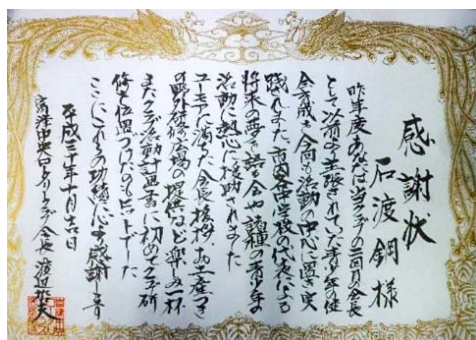 感謝状
石渡鋼様
昨年度あなたは当クラブの三回目の会長
として以前から主張されていた青少年の健
全育成を会の活動の中心に置き実
践されました市内各中学校の代表による
将来の夢を語る会や諸種の青少年の
活動に熱心に援助されました
ユーモアに満ちた会長挨拶お土産つき
の野外研修広場の提供など楽しみ一杯
またクラブ活動計画書に初めクラブ研
修を位置づけたのもヒットでした
ここにこれらの功績に心から感謝します
平成三十年十月吉日
高津中央ロータリークラブ 会長 渡辺